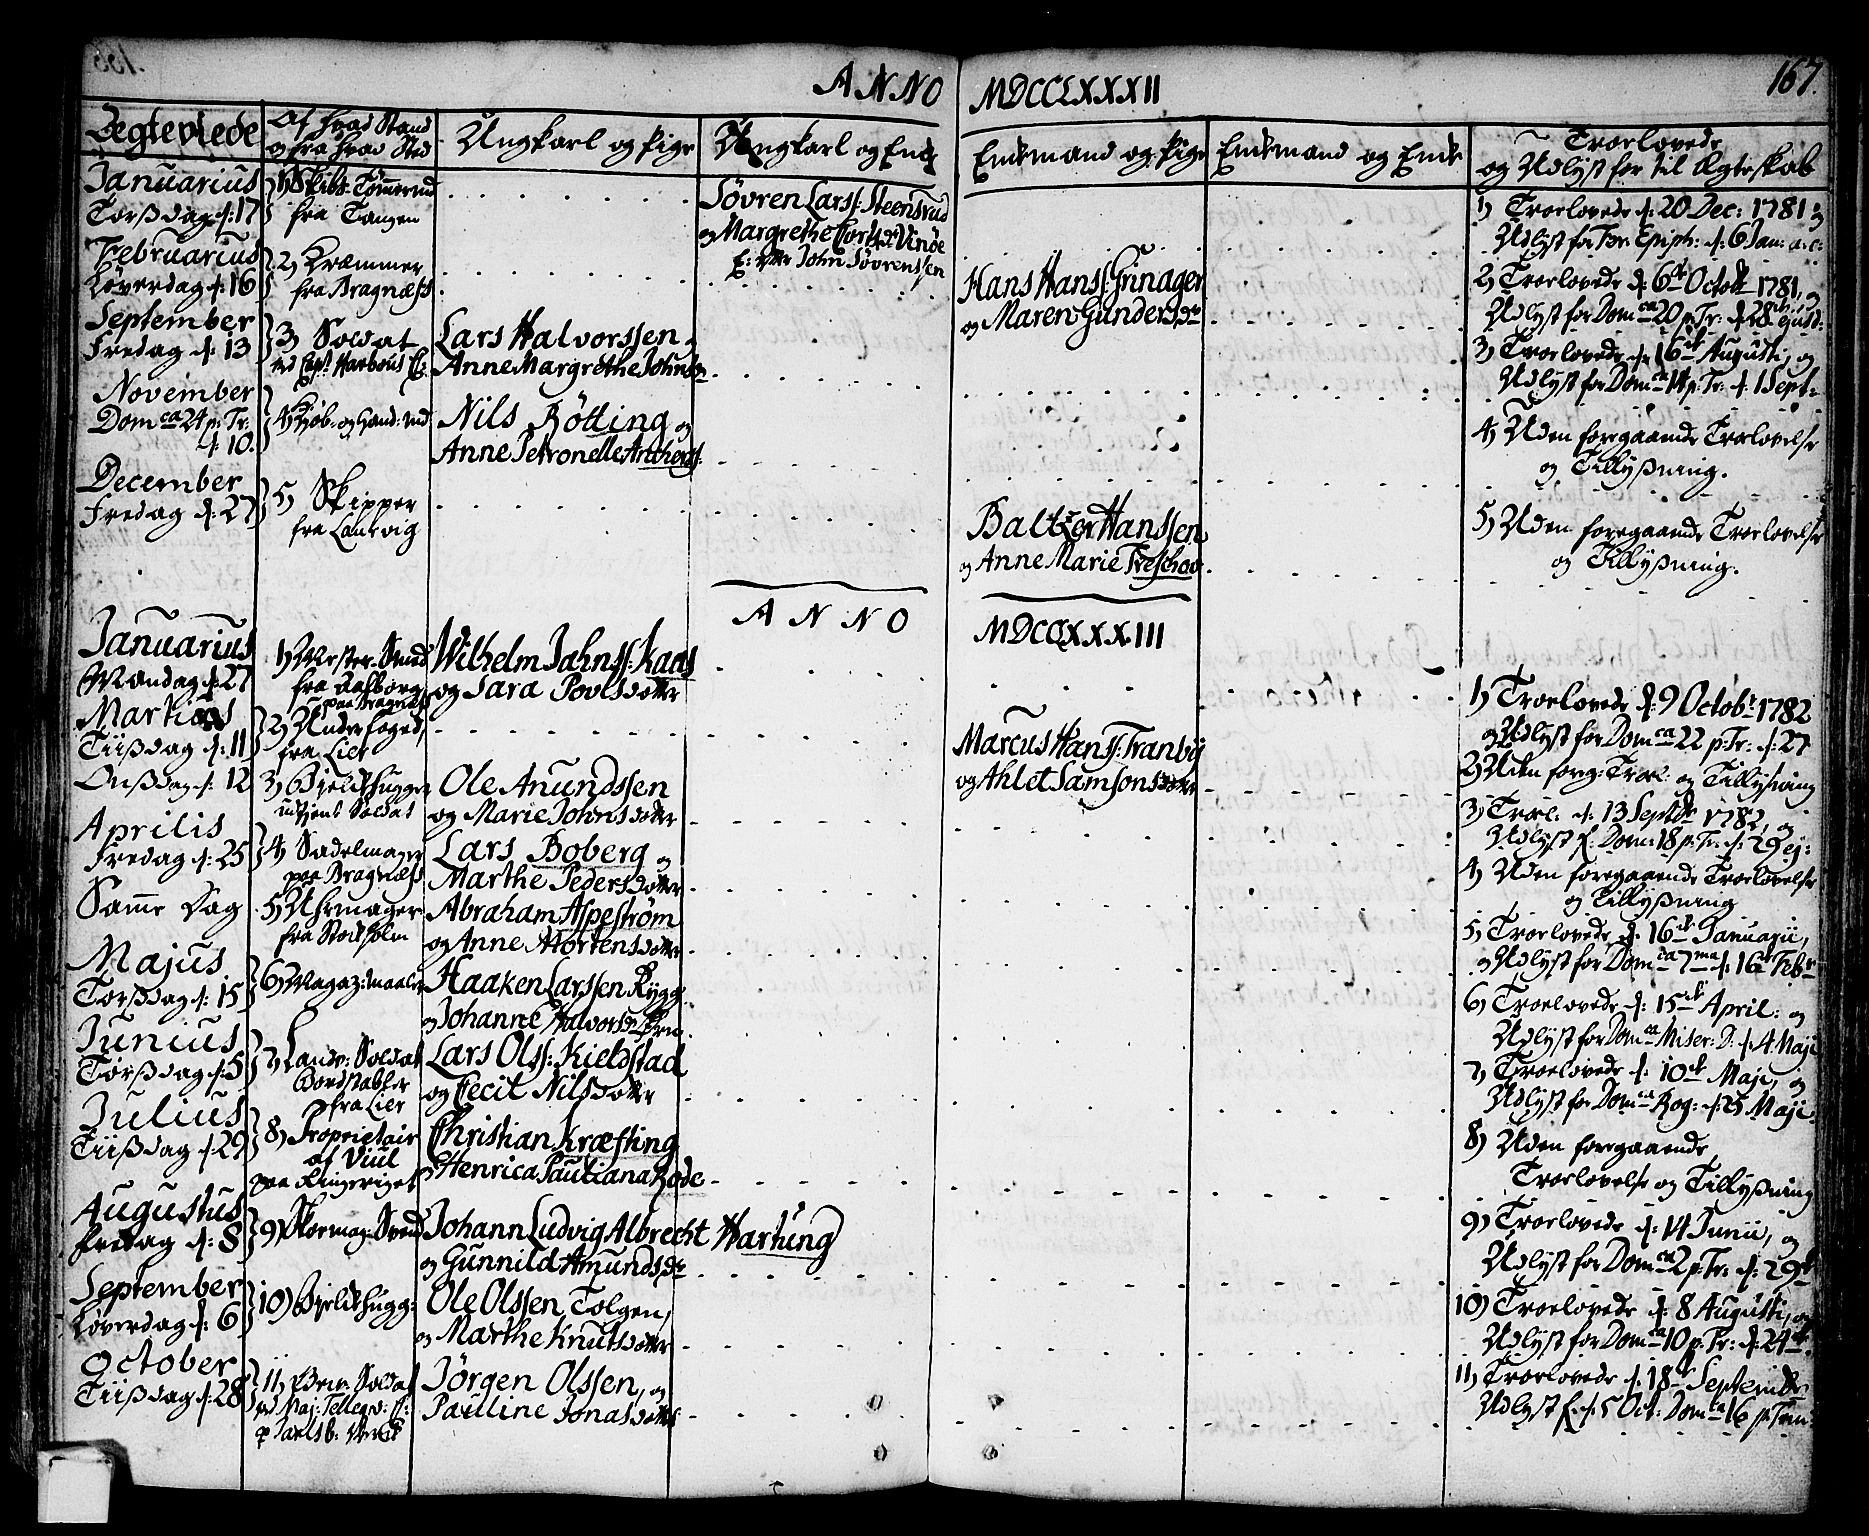 ANNO MDCCLXXXII
167.
Ægteviede
Af hvad Stand
og fra hvad Sted
Ungkarl og Pige
Ungkarl og Enke
Enkemand og Pige
Enkemand og Enke
Troelovede
og Udlyst for til Ægteskab
Januarius
Torsdag d: 17
1) Skibs Tømmermd
fra Tangen
Søvren Larss: Steensrud
og Margrethe Vinøe
E: efter John Søvrenssen
1) Troelovede d: 20 Dec: 1781 og
Udlyst for Epiph: d: 6 Jan: a.c:
Februarius
Løverdag d: 16
2) Kræmmer
fra Bragnæss
Hans Hanss: Grinager
og Maren Gundersdr
2) Troelovede d: 6te Octob 1781, og
Udlyst for Dom ca 20 p: Tr: d: 28
September
Fredag d: 13
3) Soldat
ved Capt: Harbous C:
Lars Halvorssen
Anne Margrethe Johnsdr
3) Troelovede d: 16te Augusti, og
Udlyst for Dom ca 14 p: Tr: d: 1 Sept:
November
Dom ca 24 p: Tr:
d: 10.
4) Kiøb- og Hand: md
Nils Bötting og
Anne Petronelle Anchers:
4) Uden foregaaende Troelovelse
og Tillysning.
December
Fredag d: 27
5) Skipper
fra Laurvig
Baltzer Hanssen
og Anne Marie Treschow
5) Uden foregaaende Troelovelse
og Tillysning.
ANNO MDCCLXXXIII
Januarius
Mandag d: 27
1) Mester-Smed
fra Aalborg
paa Bragnæss
Wilhelm Jahnss: Kaas
og Sara Povlsdotter
1) Troelovede d: 9 Octobr 1782
og Udlyst for Dom ca 22 p: Tr: d: 27
Martius
Tiisdag d: 11
2) Underfoged,
fra Lier
Marcus Hanss: Tranby
og Ahlet Samsonsdotter
2) Uden forg: Troel: og Tillysning
Onsdag d: 12
3) Bielkehugger
udtient Soldat
Ole Anundssen
og Marie Johnsdotter
3) Troel: d: 13 Septbr 1782, og
Udlyst f: Dom: 18 p: Tr: d: 29 ej:
Aprilis
Fredag d: 25
4) Sadelmager
paa Bragnæss
Lars Boberg og
Marthe Pedersdotter
4) Uden foregaaende Troelovelse
og Tillysning
Samme Dag
5) Uhrmager
fra Stockholm
Abraham Aspeström
og Anne Mortensdotter
5) Troelovede d: 16te Januarii,
og Udlyst for Dom ca 7ma d: 16 Febr
Majus
Torsdag d: 15
6) Magaz: maaler
Haaken Larssen Rygg
og Johanne Halvorsdr
6) Troelovede d: 15te April: og
Udlyst for Dom ca Miser: D: d: 4 Maji
Junius
Torsdag d: 5
7) Landv: Soldat
Bordstabler
fra Lier
Lars Olss: Kieldstad
og Cecil Nilsdotter
7) Troelovede d: 10de Maji, og
Udlyst for Dom ca Rog: d: 25 Maji
Julius
Tiisdag d: 29
8) Proprietair
af Viul
paa Ringeriget
Christian Kræfting
og Henrica Pauliana Bode
8) Uden foregaaende
Troelovelse og Tillysning
Augustus
Fredag d: 8
9) Skomag: Svend
Johann Ludvig Albrecht Hartung
og Gunnild Amundsdr
9) Troelovede d: 14 Junii, og
Udlyst for Dom ca 2 p: Tr: d: 29de
September
Løverdag d: 6
10) Bielkehugg:
Ole Olssen Tolgen,
og Marthe Knutsdotter
10) Troelovede d: 8 Augusti, og
Udlyst for Dom ca 10 p: Tr: d: 24de
October
Tiisdag d: 28
11) Soldat
ved Maj: C:
p Jarlsb: Verk
Jörgen Olssen, og
Pauline Jonasdotter
11) Troelovede d: 18de Septembr
Udlyst f. d: 5 Oct: Dom ca 16 p: Trin: